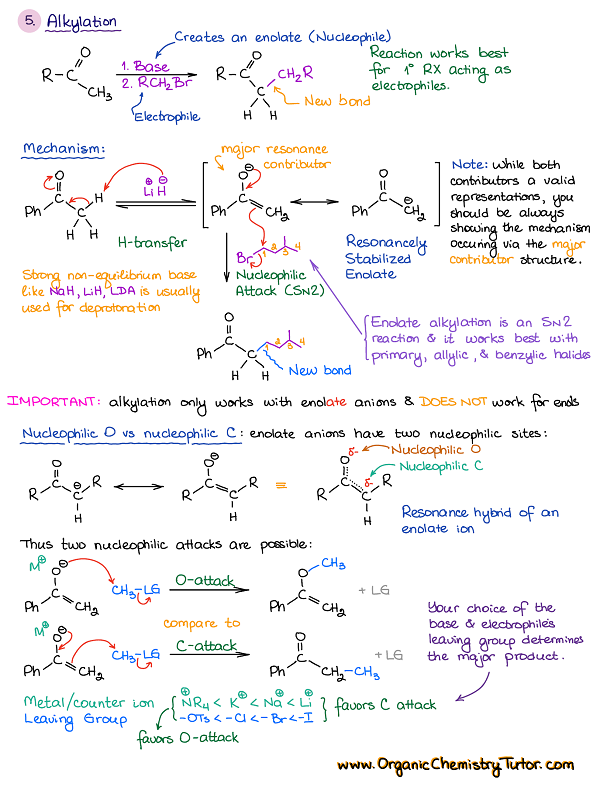 5. Alkylation
Creates an enolate (Nucleophile)
O
R C CH3
1. Base
2. RCH2Br
Electrophile
O
R C C CH2R
H H
New bond
Reaction works best
for 1° RX acting as
electrophiles.
Mechanism:
major resonance
contributor
O
Ph C C H
H H
⊕ ⊖
LiH
H-transfer
O⊖
Ph C CH2
O
Ph C CH2 ⊖
Resonancely
Stabilized
Enolate
Note: while both
contributors a valid
representations, you
should be always
showing the mechanism
occuring via the major
contributor structure.
Strong non-equilibrium base
like NaH, LiH, LDA is usually
used for deprotonation
Br 1 2 3 4
Nucleophilic
Attack (SN2)
O
Ph C C 1 2 3 4
H H
New bond
Enolate alkylation is an SN2
reaction & it works best with
primary, allylic, & benzylic halides
IMPORTANT: alkylation only works with enolate anions & DOES NOT work for enols
Nucleophilic O vs nucleophilic C: enolate anions have two nucleophilic sites:
O
R C C ⊖ R
H
O⊖
R C C R
H
=
O δ-
R C C δ- R
H
Nucleophilic O
Nucleophilic C
Resonance hybrid of an
enolate ion
Thus two nucleophilic attacks are possible:
M⊕ O⊖
Ph C CH2
CH3-LG
O-attack
O CH3
Ph C CH2
+ LG
compare to
M⊕ O⊖
Ph C CH2
CH3-LG
C-attack
O
Ph C CH2-CH3
+ LG
Your choice of the
base & electrophile's
leaving group determines
the major product.
Metal/counter ion
Leaving Group
⊕NR4 < K⊕ < Na⊕ < Li⊕
-OTs < -Cl < -Br < -I
favors C attack
favors O-attack
www.OrganicChemistryTutor.com